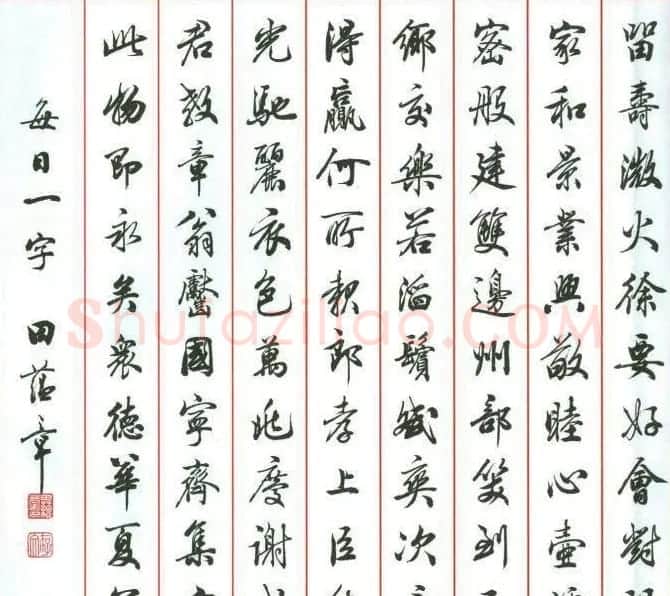 留壽火徐要好會對
家和景業興敬睦心壺
密般建雙邊州部笑到
鄉交樂若滔鬢賦奕次
得贏何所郎孝上臣
光馳麗衣色萬兆慶謝
君教章翁國寧齊集
此物即永矣衆德華夏
每日一字 田蕴章
Shufaziliao.COM